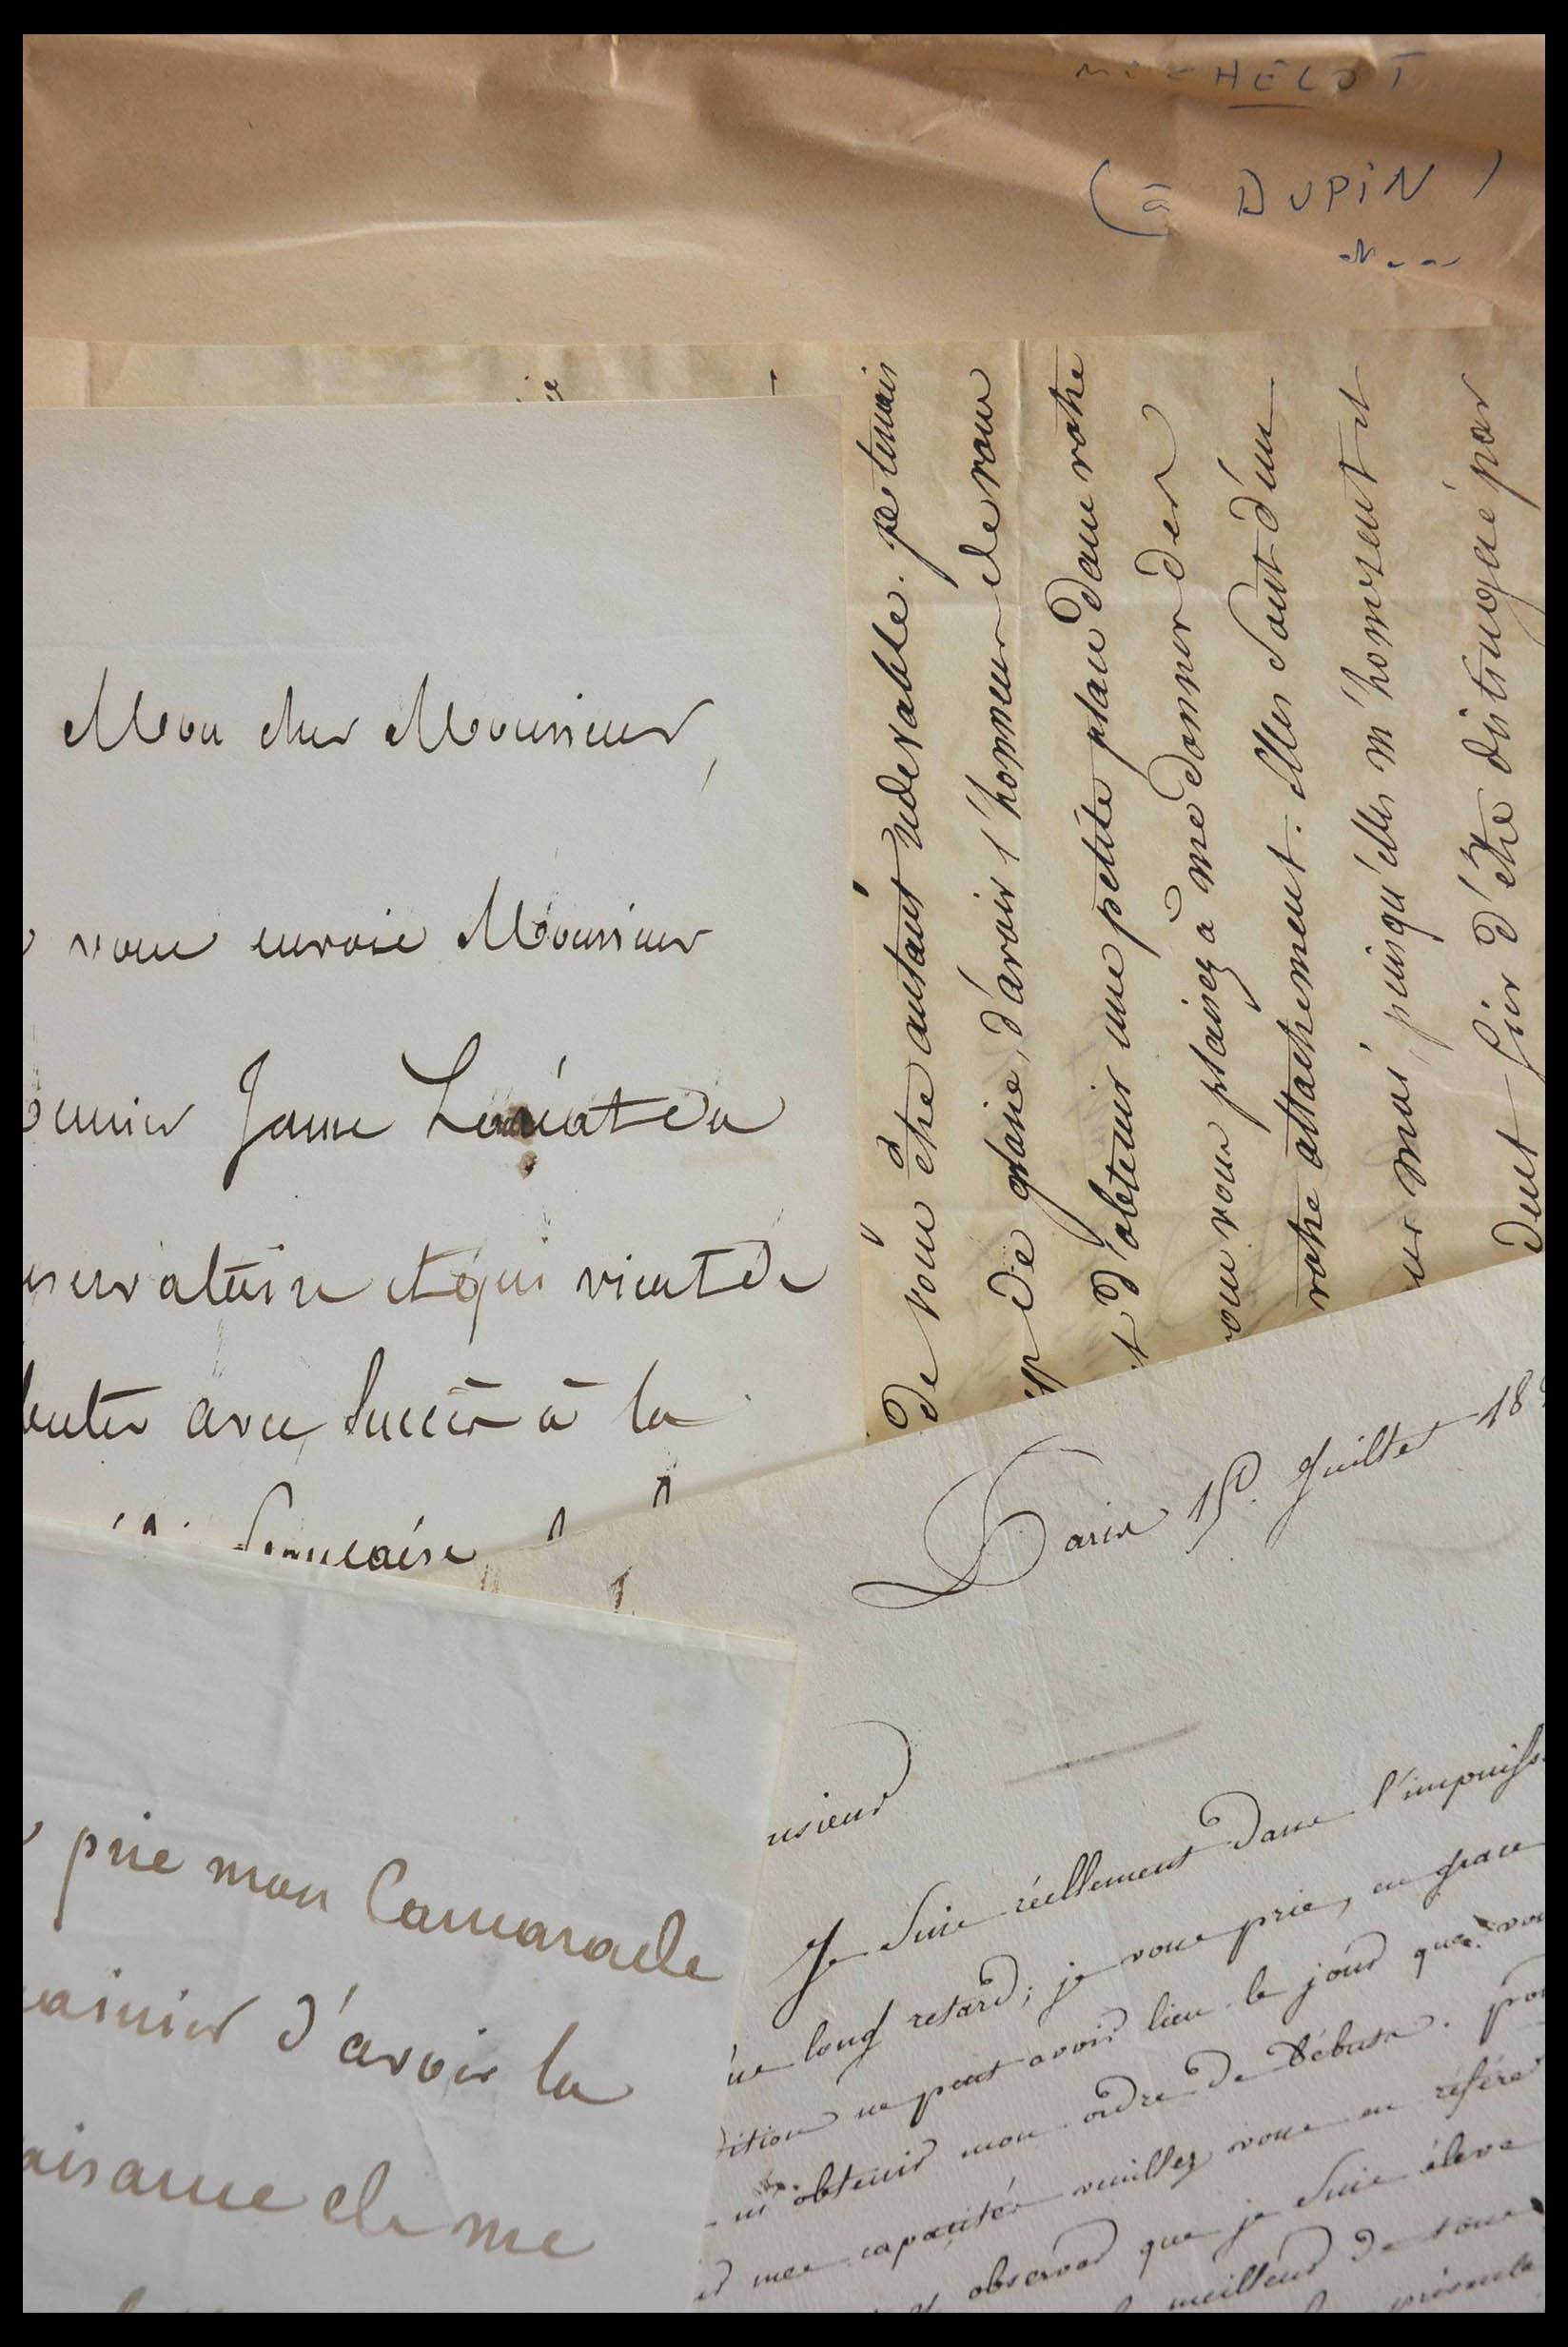 MICHELOT
(à DUPIN)
Mon cher Monsieur,
vous envoie Monsieur
Jame Lauréat du
et qui vient de
buter avec succès à la
Française
de vous être autant redevable. je tenais
de glaise, d'avoir l'honneur de vous
d'obtenir une petite place dans votre
vous vous plaisez à me donner des
votre attachement. Elles sont d'un
moi, puisqu'elles m'honorent et
fier d'être distingué par
Paris 15. Juillet 18
nsieur
Je suis réellement dans l'impuiss
long retard; je vous prie, en grace
dition ne peut avoir lieu le jour que vou
m'obtenir mon ordre de débuts. pou
mes capacités veuillez vous en référer
observer que je suis élève
meilleur de tous
présente
prie mon Camarade
d'avoir la
aisance de me